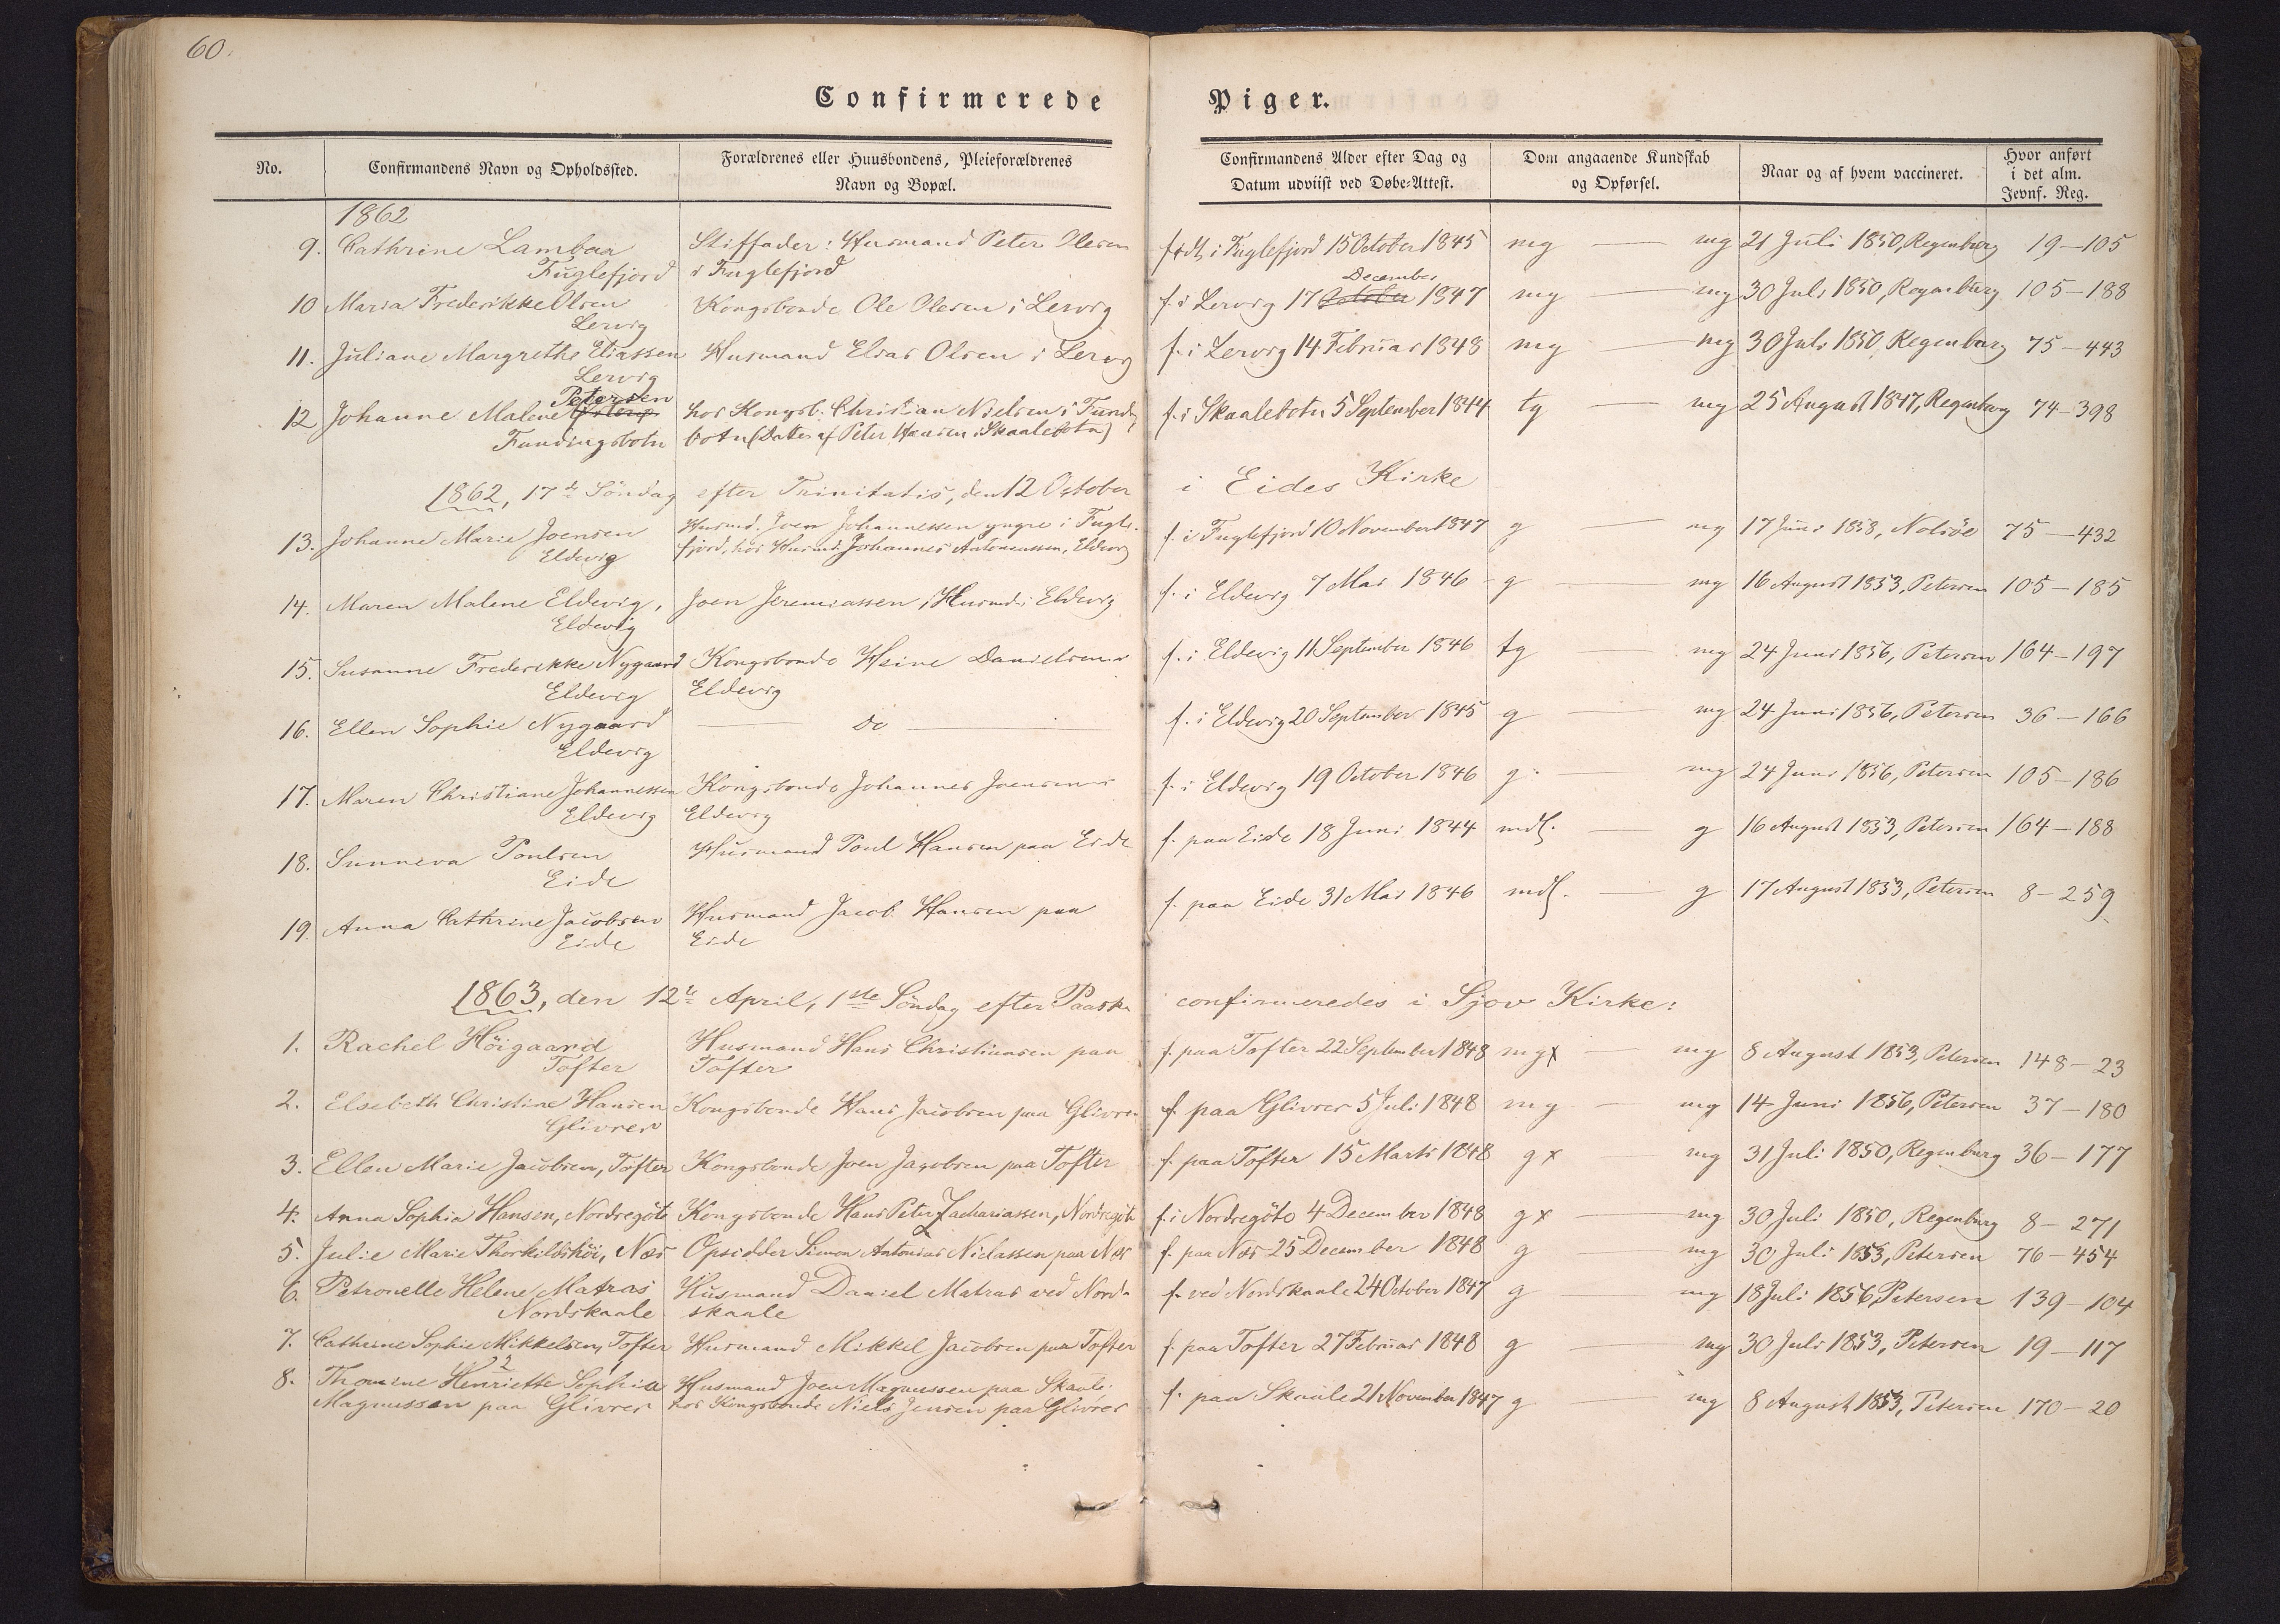 60.
Confirmerede Piger.
No. Confirmandens Navn og Opholdssted. Forældrenes eller Huusbondens, Pleieforældrenes Navn og Bopæl. Confirmandens Alder efter Dag og Datum udviist ved Døbe-Attest. Dom angaaende Kundskab og Opførsel. Naar og af hvem vaccineret. Hvor anført i det alm. Jevnf. Reg.
1862
9. Cathrine Lambaa Stiffader: Husmand Peter Olesen født i Fuglefjord 15 October 1845 mg — mg 21 Juli 1850, Regenburg 19—105
Fuglefjord i Fuglefjord
December
10 Maria Frederikke Olsen Kongsbonde Ole Olesen i Lervig f. i Lervig 17 October 1847 mg — mg 30 Juli 1850, Regenburg 105—188
Lervig
11. Juliane Margrethe Eliassen Husmand Elias Olsen i Lervig f. i Lervig 14 Februar 1848 mg — mg 30 Juli 1850, Regenburg 75—443
Lervig
Petersen
12 Johanne Malene hos Kongsb. Christian Nielsen i Fundings f. i Skaalebotn 5 September 1844 tg — mg 25 August 1847, Regenburg 74—398
Fundingsbotn botn (Datter af Peter Hansen i Skaalebotn)
1862, 17de Söndag efter Trinitatis, den 12 October i Eides Kirke
13. Johanne Marie Joensen Husmd. Joen Johannessen yngre i Fugle- f. i Fuglefjord 10 November 1847 g — mg 17 Juni 1858, Nolsöe 75—432
Eldevig fjord, hos Husmd. Johannes Antoniussen, Eldevig
14. Maren Malene Eldevig, Joen Jeremiassen, Husmd. i Eldevig f. i Eldevig 7 Mai 1846 - g — mg 16 August 1853, Petersen 105—185
Eldevig
15. Susanne Frederikke Nygaard Kongsbonde Heine Danielsen i f. i Eldevig 11 September 1846 tg — mg 24 Juni 1856, Petersen 164—197
Eldevig Eldevig
16. Ellen Sophie Nygaard — do — f. i Eldevig 20 September 1845 g — mg 24 Juni 1856, Petersen 36—166
Eldevig
17. Maren Christiane Johannessen Kongsbonde Johannes Joensen i f. i Eldevig 19 October 1846 g — mg 24 Juni 1856, Petersen 105—186
Eldevig Eldevig
18. Sunneva Poulsen Husmand Poul Hansen paa Eide f. paa Eide 18 Juni 1844 mdl. — g 16 August 1853, Petersen 164—188
Eide
19. Anna Cathrine Jacobsen Husmand Jacob Hansen paa f. paa Eide 31 Mai 1846 mdl. — g 17 August 1853, Petersen 8—259
Eide Eide
1863, den 12te April, 1ste Söndag efter Paaske confirmeredes i Sjov Kirke:
1. Rachel Höigaard Husmand Hans Christiansen paa f. paa Tofter 22 September 1848 mg x — mg 8 August 1853, Petersen 148—23
Tofter Tofter
2. Elsebeth Christine Hansen Kongsbonde Hans Jacobsen paa Glivrer f. paa Glivrer 5 Juli 1848 mg — mg 14 Juni 1856, Petersen 37—180
Glivrer
3. Ellen Marie Jacobsen, Tofter Kongsbonde Joen Jacobsen paa Tofter f. paa Tofter 15 Marts 1848 g x — mg 31 Juli 1850, Regenburg 36—177
4. Anna Sophia Hansen, Nordregöte Kongsbonde Hans Peter Zachariassen, Nordregöte f. i Nordregöto 4 December 1848 g x — mg 30 Juli 1850, Regenburg 8—271
5. Julie Marie Thorkildshöi, Næs Opsidder Simon Antonius Niclassen paa Næs f. paa Næs 25 December 1848 g — mg 30 Juli 1853, Petersen 76—454
6. Petronelle Helene Matras Husmand Daniel Matras ved Nord- f. ved Nordskaale 24 October 1847 g — mg 18 Juli 1856, Petersen 139—104
Nordskaale skaale
7. Cathrine Sophie Mikkelsen, Tofter Husmand Mikkel Jacobsen paa Tofter f. paa Tofter 27 Februar 1848 g — mg 30 Juli 1853, Petersen 19—117
8. Thomine Henriette Sophia Husmand Joen Magnussen paa Skaale f. paa Skaale 21 November 1847 g — mg 8 August 1853, Petersen 170—20
Magnussen paa Glivrer hos Kongsbonde Niels Jensen paa Glivrer